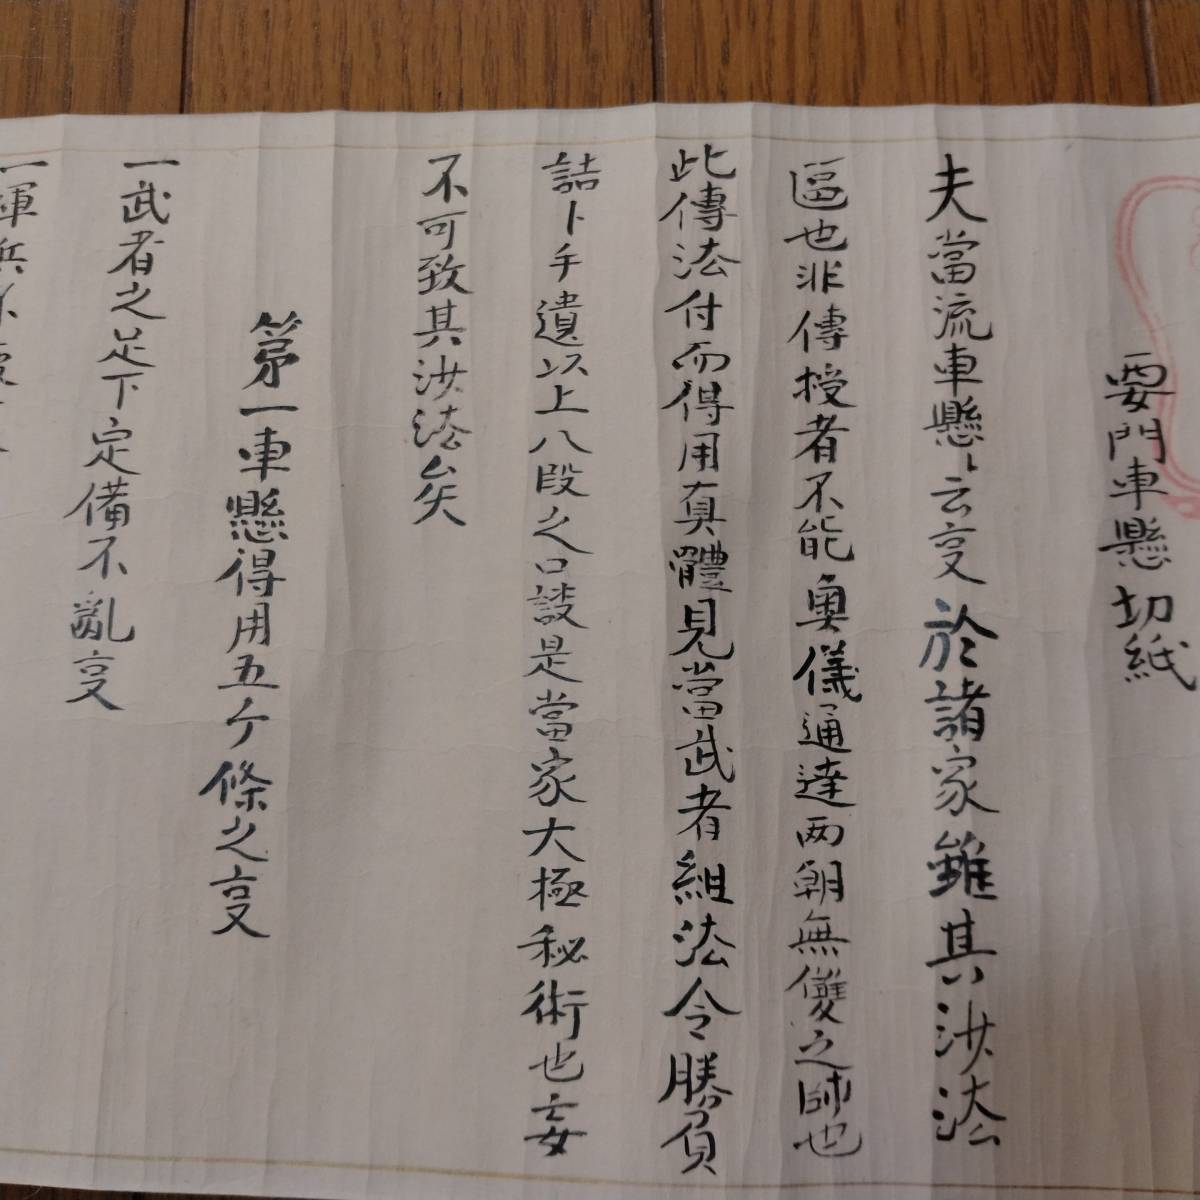 要門車懸切紙
夫當流車懸〻云叓於諸家雖其洪法
區也非傳授者不能奥儀通達两朝無雙之師也
此傳法付而得用真體見當武者組法令勝負
詰卜手遺以上八段之口談是當家大極秘術也妄
不可致其洪法矣
第一車懸得用五ケ條之叓
一武者之足下定備不亂叓
一軍兵